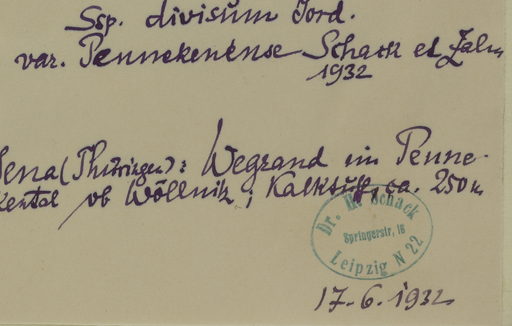 Ssp. divisum Jord.
var. Pennekenense Schack et Zahn
1932
Jena (Thüringen): Wegrand im Penne-
kental ob Wöllnitz, Kalktuff, ca. 250 m
Dr. H. Schack
Springerstr. 16
Leipzig N 22
17.6.1932